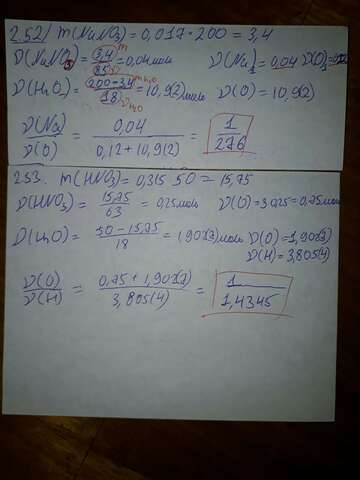 2.52/ m(NaNO3) = 0,017 · 200 = 3,4
ν(NaNO3) = 3,4 / 85 = 0,04 моль ν(Na) = 0,04 ν(O) =
ν(H2O) = 200-3,4 / 18 = 10,9(2) моль ν(O) = 10,9(2)
ν(Na) / ν(O) = 0,04 / 0,12+10,9(2) = 1 / 276
2.53. m(HNO3) = 0,315 50 = 15,75
ν(HNO3) = 15,75 / 63 = 0,25 моль ν(O) = 3·0,25 = 0,75 моль
ν(H2O) = 50-15,75 / 18 = 1,902(7) моль ν(O) = 1,902(7)
ν(H) = 3,805(4)
ν(O) / ν(H) = 0,75 + 1,902(7) / 3,805(4) = 1 / 1,4345